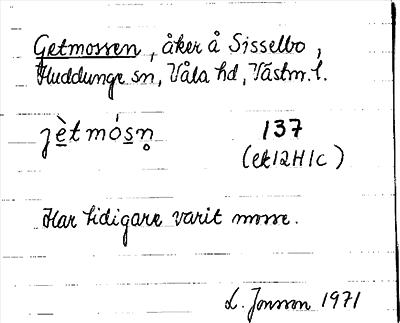 Getmossen, åker å Sisselbo,
Huddunge sn, Våla hd, Västm. l.
jè̲tmós̲n̥ 137
(ek 12H1c)
Har tidigare varit mosse.
L. Jonsson 1971